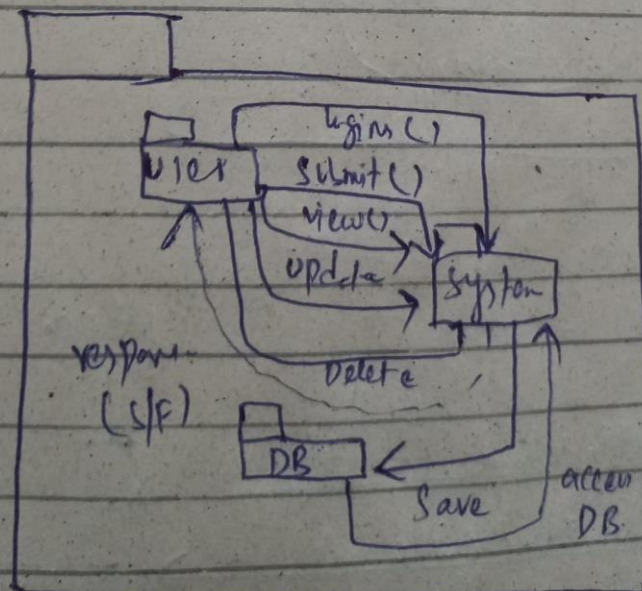 login()
User
Submit()
view()
Update
System
Delete
response
(S/F)
DB
Save
access
DB